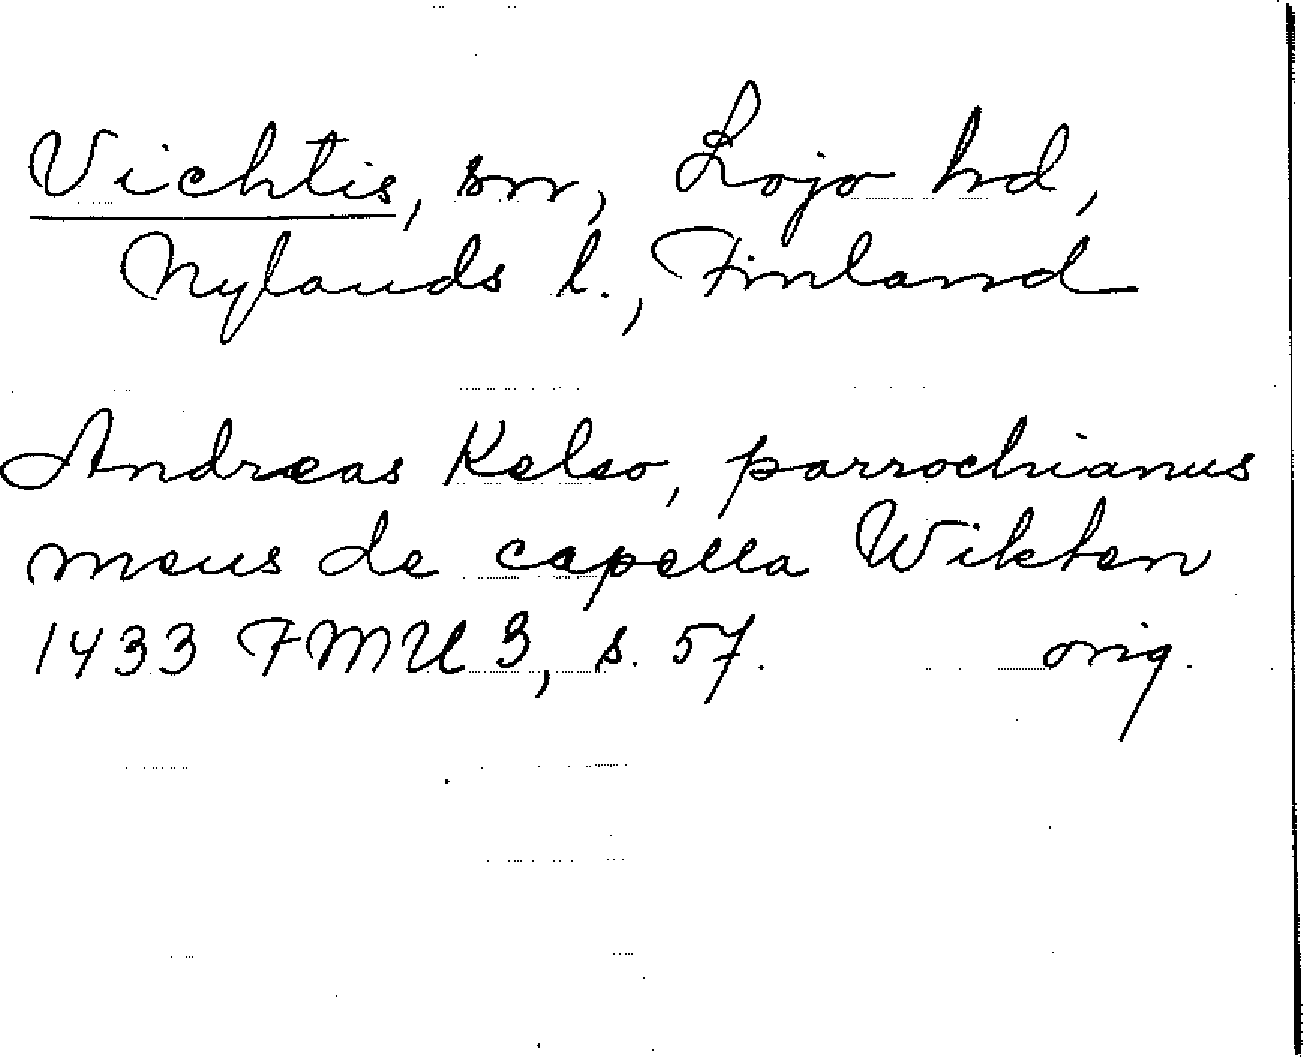 Vichtis, sn, Lojo hd,
Nylands l., Finland
Andreas Keleo, parrochianus
meus de capella Wikten
1433 FMU 3, s. 57. orig.